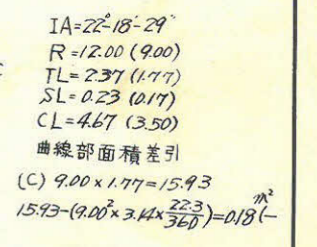 IA=22°-18'-29"
R=12.00 (9.00)
TL=2.37 (1.77)
SL=0.23 (0.17)
CL=4.67 (3.50)
曲線部面積差引
(C) 9.00×1.77=15.93
15.93-(9.00²×3.14×22.3/360)=0.18 m² (-